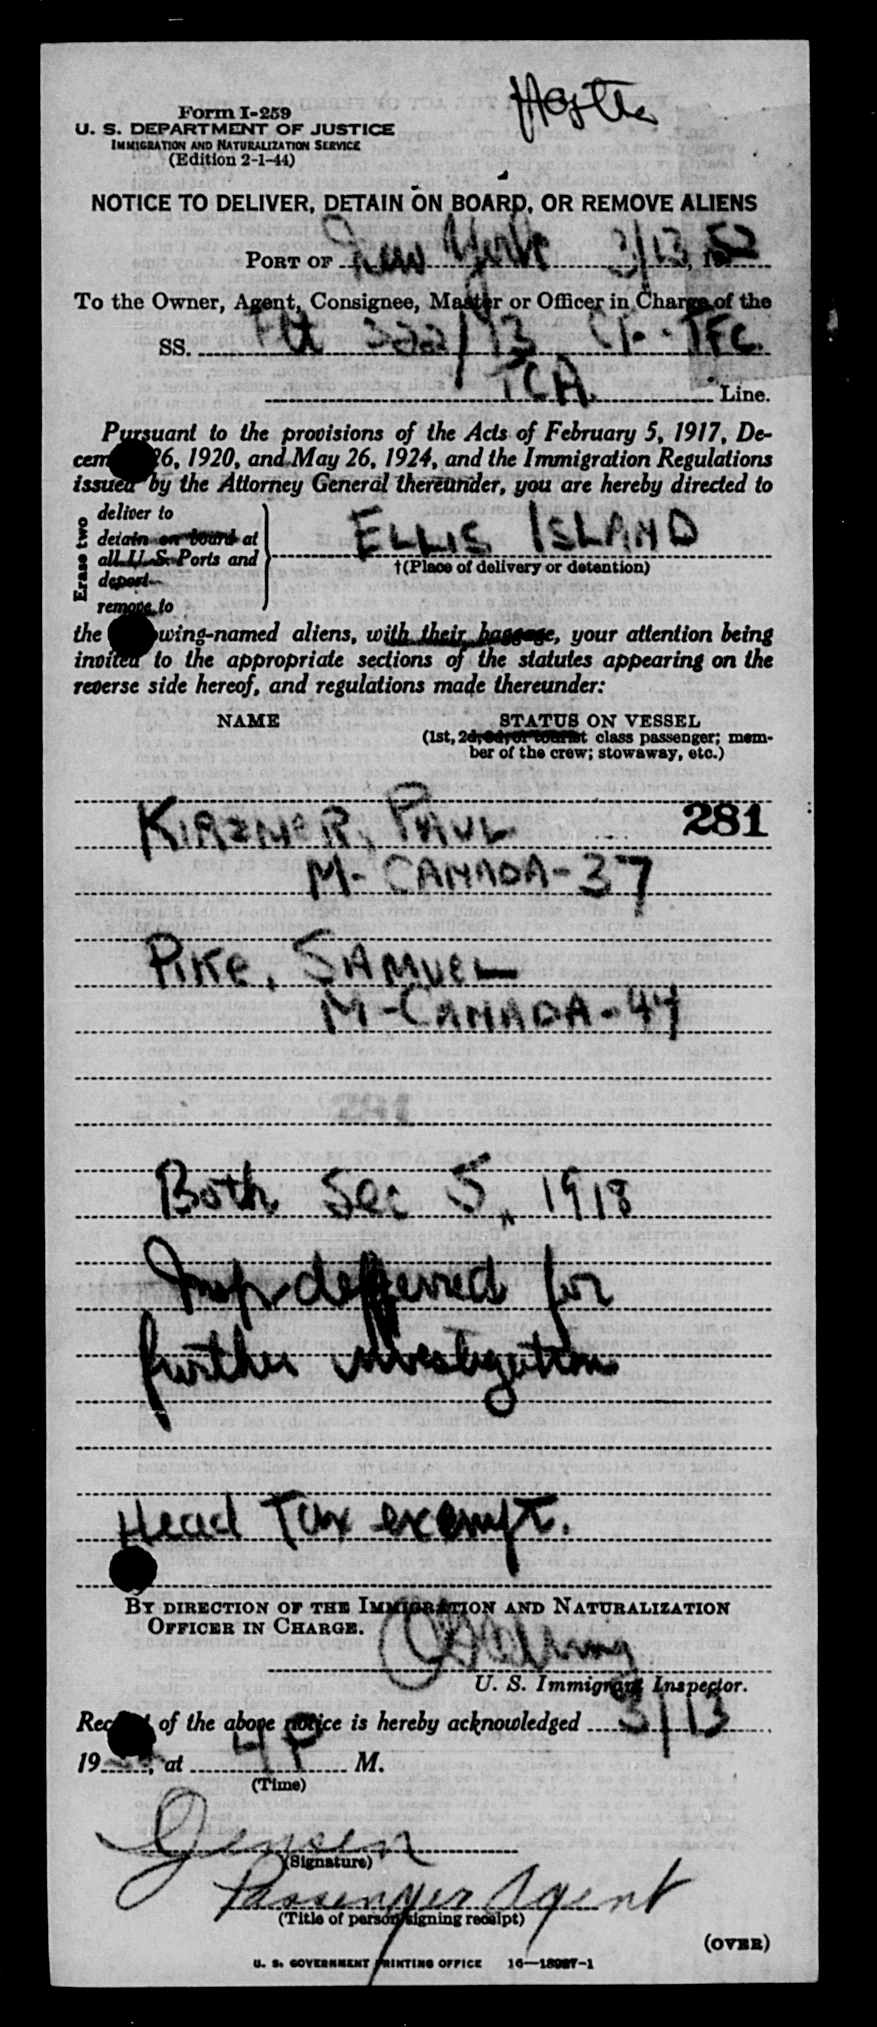 Form I-259
U. S. DEPARTMENT OF JUSTICE
IMMIGRATION AND NATURALIZATION SERVICE
(Edition 2-1-44)
NOTICE TO DELIVER, DETAIN ON BOARD, OR REMOVE ALIENS
PORT OF New York 3/13, 1952
To the Owner, Agent, Consignee, Master or Officer in Charge of the
SS. Flt 322/13 CF-TFC
TCA Line.
Pursuant to the provisions of the Acts of February 5, 1917, De-
cem 26, 1920, and May 26, 1924, and the Immigration Regulations
issued by the Attorney General thereunder, you are hereby directed to
Erase two
deliver to
detain on board at
all U.S. Ports and
deport
remove to
ELLIS ISLAND
†(Place of delivery or detention)
the wing-named aliens, with their baggage, your attention being
invited to the appropriate sections of the statutes appearing on the
reverse side hereof, and regulations made thereunder:
NAME
STATUS ON VESSEL
(1st, 2d, 3d, or tourist class passenger; mem-
ber of the crew; stowaway, etc.)
281
KIRZNER, PAUL
M-CANADA-37
PIKE, SAMUEL
M-CANADA-44
Both Sec 5, 1918
Insp deferred for
further investigation
Head Tax exempt.
BY DIRECTION OF THE IMMIGRATION AND NATURALIZATION
OFFICER IN CHARGE.
U. S. Immigrant Inspector.
Rec t of the above notice is hereby acknowledged 3/13
19 , at 4 P M.
(Time)
Jensen
(Signature)
Passenger Agent
(Title of person signing receipt)
(OVER)
U. S. GOVERNMENT PRINTING OFFICE 16—18987-1